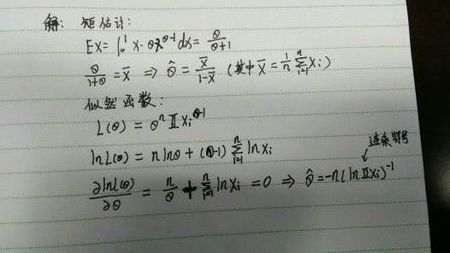 解: 矩估计:
EX = ∫₀¹ x·θx^(θ-1) dx = θ/(θ+1)
θ/(1+θ) = X̄ ⇒ θ̂ = X̄/(1-X̄) (其中 X̄ = 1/n Σᵢ₌₁ⁿ Xᵢ)
似然函数:
L(θ) = θⁿ ∏ Xᵢ^(θ-1)
lnL(θ) = n lnθ + (θ-1) Σᵢ₌₁ⁿ ln Xᵢ
连乘符号
∂lnL(θ)/∂θ = n/θ + Σᵢ₌₁ⁿ ln Xᵢ = 0 ⇒ θ̂ = -n(ln∏Xᵢ)⁻¹